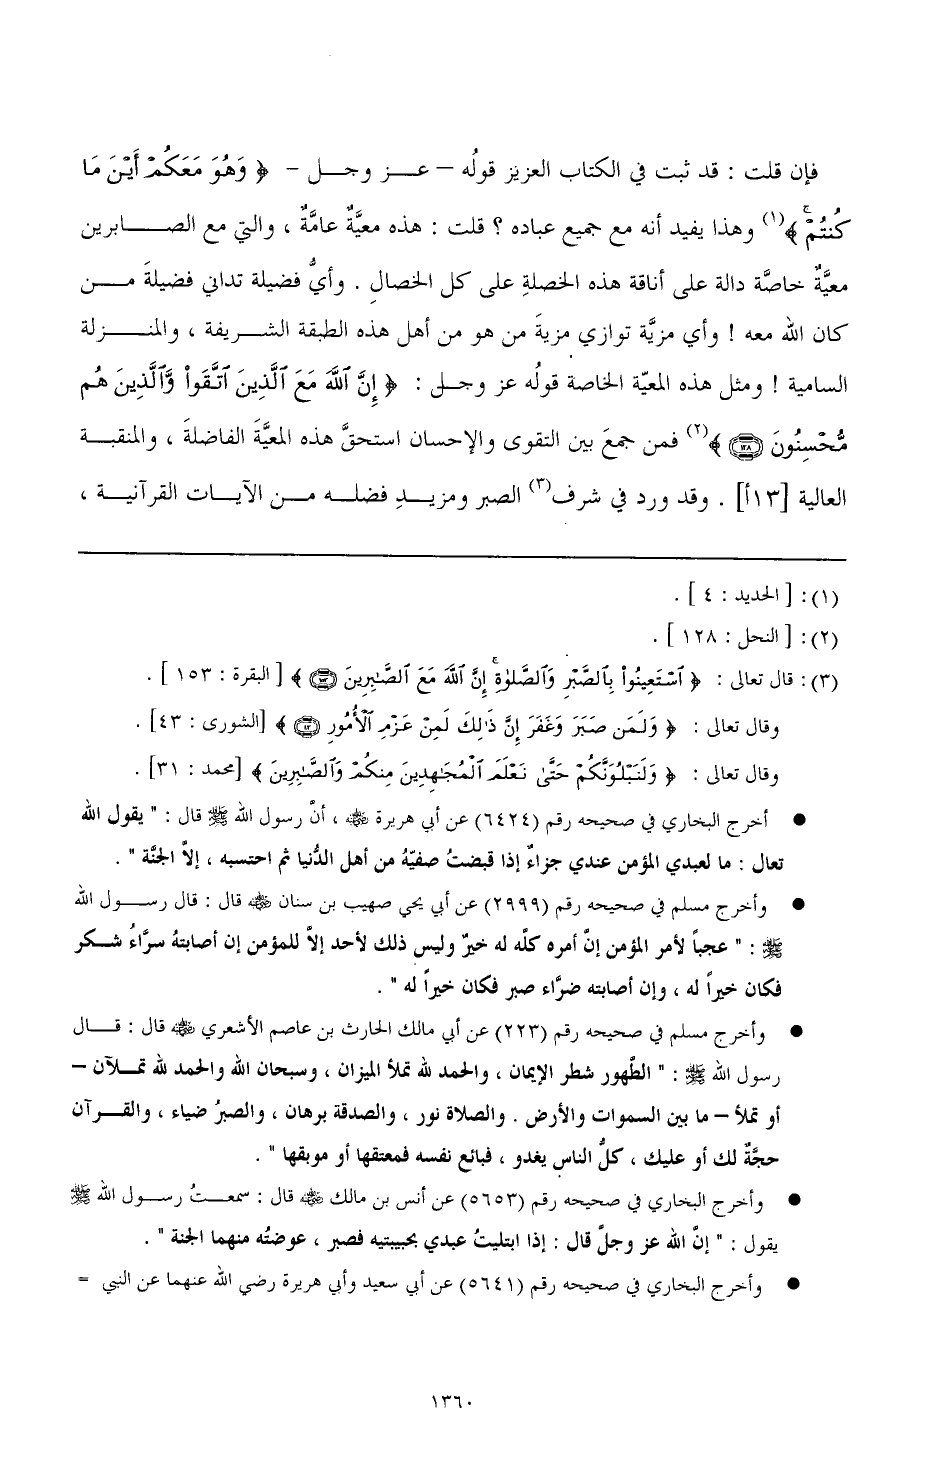 فإن قلت : قد ثبت في الكتاب العزيز قولُه – عـــز وجـــل – ﴿ وَهُوَ مَعَكُمْ أَيْنَ مَا
كُنتُمْ ۚ ﴾(١) وهذا يفيد أنه مع جميع عباده ؟ قلت : هذه معيَّةٌ عامَّةٌ ، والتي مع الصـــــابرين
معيَّةٌ خاصَّة دالة على أناقة هذه الخصلةِ على كل الخصالِ . وأيُّ فضيلة تداني فضيلةَ مـــن
كان الله معه ! وأي مزيَّة توازي مزيةَ من هو من أهل هذه الطبقة الشـريفة ، والمنـــزلة
السامية ! ومثل هذه المعيّة الخاصة قولُه عز وجـل : ﴿ إِنَّ ٱللَّهَ مَعَ ٱلَّذِينَ ٱتَّقَوا۟ وَّٱلَّذِينَ هُم
مُّحْسِنُونَ ١٢٨ ﴾(٢) فمن جمعَ بين التقوى والإحسان استحقَّ هذه المعيَّةَ الفاضلةَ ، والمنقبـة
العالية [١٣أ] . وقد ورد في شرف(٣) الصبر ومزيـدِ فضلـه مـن الآيـات القرآنيـة ،
(١): [ الحديد : ٤ ] .
(٢): [ النحل : ١٢٨ ] .
(٣): قال تعالى : ﴿ ٱسْتَعِينُوا۟ بِٱلصَّبْرِ وَٱلصَّلَوٰةِ ۚ إِنَّ ٱللَّهَ مَعَ ٱلصَّـٰبِرِينَ ١٥٣ ﴾ [ البقرة : ١٥٣ ] .
وقال تعالى : ﴿ وَلَمَن صَبَرَ وَغَفَرَ إِنَّ ذَٰلِكَ لَمِنْ عَزْمِ ٱلْأُمُورِ ٤٣ ﴾ [الشورى : ٤٣] .
وقال تعالى : ﴿ وَلَنَبْلُوَنَّكُمْ حَتَّىٰ نَعْلَمَ ٱلْمُجَـٰهِدِينَ مِنكُمْ وَٱلصَّـٰبِرِينَ ﴾ [محمد : ٣١] .
● أخرج البخاري في صحيحه رقم (٦٤٢٤) عن أبي هريرة ﵁ ، أنَّ رسول الله ﷺ قال : " يقول الله
تعال : ما لعبدي المؤمن عندي جزاءٌ إذا قبضتُ صفيّهُ من أهل الدُّنيا ثم احتسبه ، إلاَّ الجنَّة " .
● وأخرج مسلم في صحيحه رقم (٢٩٩٩) عن أبي يحي صهيب بن سنان ﵁ قال : قال رســـول الله
ﷺ : " عجباً لأمر المؤمن إنَّ أمره كلّه له خيرٌ وليس ذلك لأحد إلاَّ للمؤمن إن أصابتهُ سرَّاءُ شـكر
فكان خيراً له ، وإن أصابته ضرَّاء صبر فكان خيراً له " .
● وأخرج مسلم في صحيحه رقم (٢٢٣) عن أبي مالك الحارث بن عاصم الأشعري ﵁ قال : قـــال
رسول الله ﷺ : " الطَّهور شطر الإيمان ، والحمد لله تملأ الميزان ، وسبحان الله والحمد لله تمـلآن –
أو تملأ – ما بين السموات والأرض . والصلاة نور ، والصدقة برهان ، والصبرُ ضياء ، والقـــرآن
حجَّةٌ لك أو عليك ، كلُّ الناس يغدو ، فبائع نفسه فمعتقها أو موبقها " .
● وأخرج البخاري في صحيحه رقم (٥٦٥٣) عن أنس بن مالك ﵁ قال : سمعـــتُ رســـول الله ﷺ
يقول : " إنَّ الله عز وجلَّ قال : إذا ابتليتُ عبدي بحبيبتيه فصبر ، عوضتُه منهما الجنة " .
● وأخرج البخاري في صحيحه رقم (٥٦٤١) عن أبي سعيد وأبي هريرة رضي الله عنهما عن النبي =
١٣٦٠